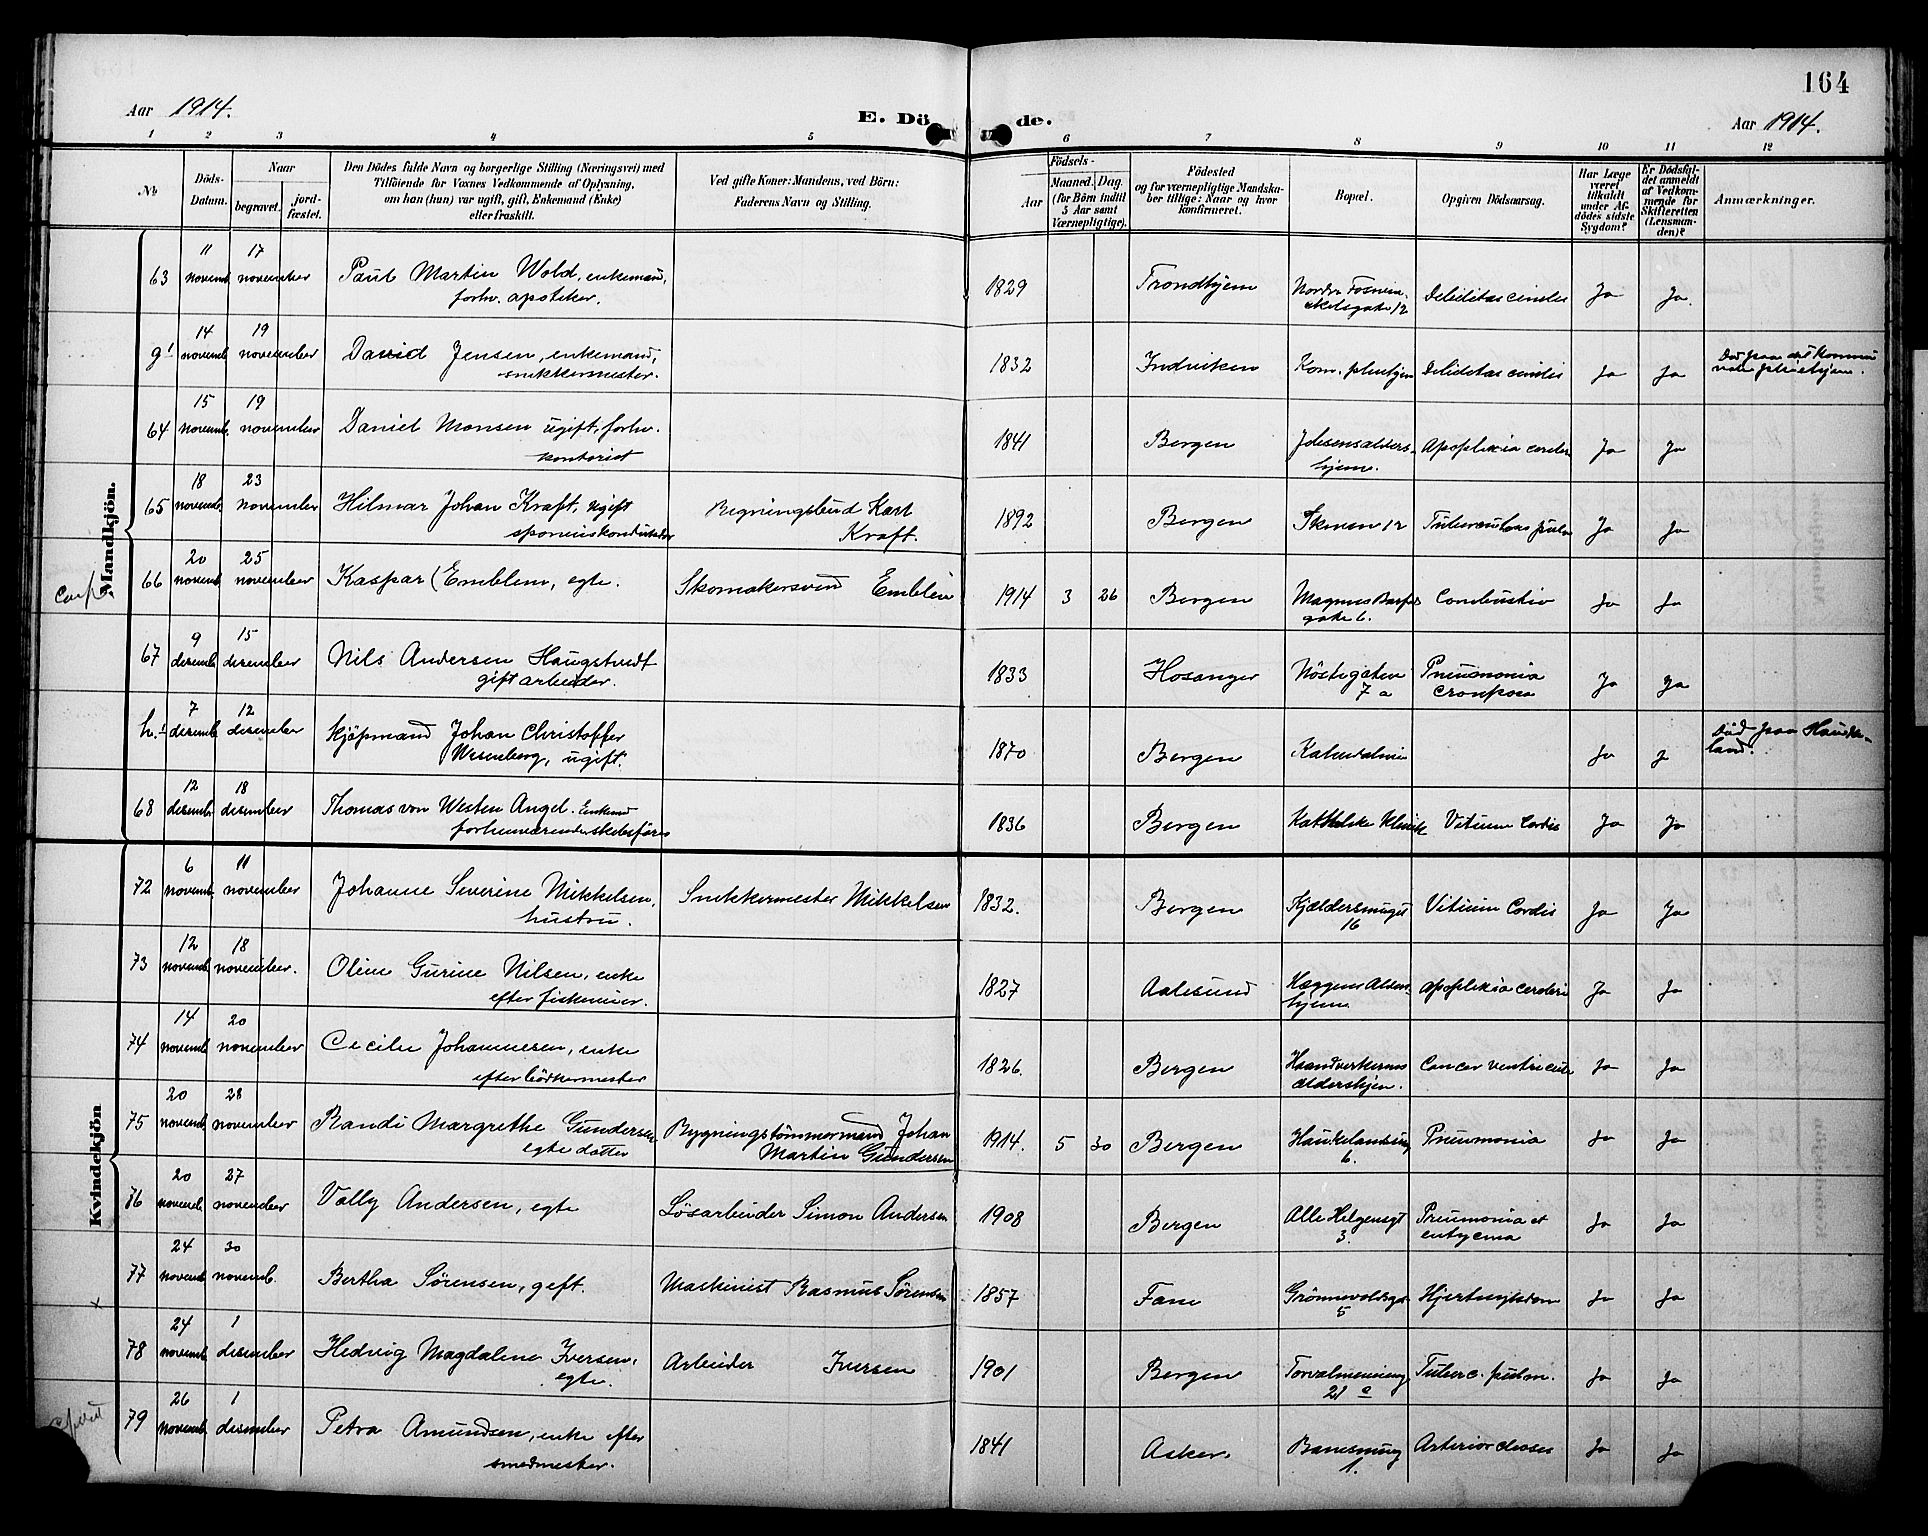 164
Aar 1914.
E. Dö de.
Aar 1914.
1 2 3 4 5 6 7 8 9 10 11 12
No.
Döds-
Datum.
Naar
begravet.
jord-
fæstet.
Den Dödes fulde Navn og borgerlige Stilling (Næringsvei) med
Tilföiende for Voxnes Vedkommende af Oplysning,
om han (hun) var ugift, gift, Enkemand (Enke)
eller fraskilt.
Ved gifte Koner: Mandens, ved Börn:
Faderens Navn og Stilling.
Födsels-
Aar
Maaned. Dag.
(for Börn indtil
5 Aar samt
Værnepligtige).
Födested
og for værnepligtige Mandska-
ber tillige: Naar og hvor
konfirmeret.
Bopæl.
Opgiven Dödsaarsag.
Har Læge
været
tilkaldt
under Af-
dödes sidste
Sygdom?
Er Dödsfal-
det anmeldt
af Vedkom-
mende for
Skifteretten
(Lensman-
den)?
Anmærkninger.
Mandkjön.
63 11 novemb. 17 november Paul Martin Wold, enkemand, 1829 Trondhjem Ja Ja.
forhv. apoteker.
g' 14 novemb. 19 november David Jensen, enkemand, 1832 Indviken Ja Ja
snekkermester.
64 15 novemb. 19 november Daniel Monsen ugift, forhv. 1841 Bergen Apoplexia cerebri Ja Ja
kontorist hjem.
65 18 novemb. 23 november Hilmar Johan Kraft, ugift Bygningsbud Karl 1892 Bergen Skuteviken 12 Ja Ja
Kraft.
66 20 novemb. 25 november Kaspar (Emblem, egte. Skomakersvend Emblem 1914 3 26 Bergen Magnus Barfots Combustio Ja Ja
gate 6.
67 9 desemb. 15 desember Nils Andersen Haugstvedt 1833 Hosanger Nöstegaten Pneumonia Ja Ja
gift arbeider. 7 a crouposa
h.' 7 desemb. 12 desember Kjöpmand Johan Christoffer 1870 Bergen Kalvedalsvei Ja J Död paa Hauke-
Wesenberg, ugift. land.
68 12 desemb. 18 desember Thomas von Westen Angel. Enkemd 1836 Bergen Katholske Klinik Vitium Cordis Ja Ja
forhenværende skibsförer
Kvindekjön
72 6 novemb. 11 november Johanne Severine Mikkelsen, Snekkermester Mikkelsen 1832. Bergen Kjældersmuget Vitium Cordis Ja Ja
hustru. 16
73 12 novemb. 18 november. Oline Gurine Nilsen, enke 1827 Aalesund Hæggenes Alders- apoplexia cerebri Ja Ja
efter fiskerieier. hjem
74 14 novemb. 20 november Cecilie Johannesen, enke 1826. Bergen Haandverkernes Cancer ventriculi Ja Ja
efter bödkermester aldershjem.
75 20 novemb. 28 november Randi Margrethe Gundersen Bygningstömmermand Johan 1914. 5 30 Bergen Haukelandsvei Pneumonia Ja Ja
egte datter Martin Gundersen 6.
76 20 novemb. 27 november Vally Andersen, egte Lösarbeider Simon Andersen 1908 Bergen Alle Helgensgt Pneumonia et Ja Ja
3. empyema
77 24 novemb. 30 novemb. Bertha Sörensen, gift. Maskinist Rasmus Sörensen 1857 Fane Grönnevoldsgt. Hjertesygdom Ja Ja
5
78 24 novemb. 1 desember Hedvig Magdalene Iversen, Arbeider Iversen 1901 Bergen Torvalmenning Tuberc. pulm. Ja Ja
egte. 21 e
79 26 novemb. 1 desember Petra Amundsen, enke efter 1841 Asker Arteriosclerose Ja Ja
smedmester. 1.